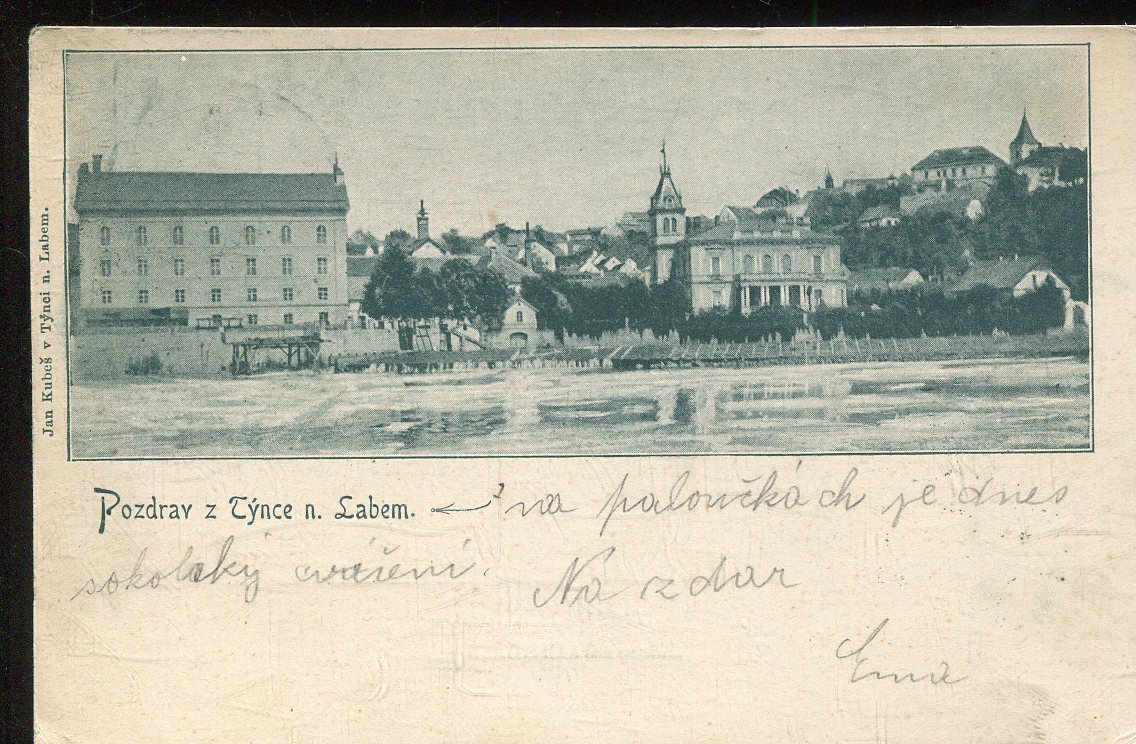 Jan Kubeš v Týnci n. Labem.
Pozdrav z Týnce n. Labem. na paloučkách je dnes
sokolský cvičení. Na zdar
Ema